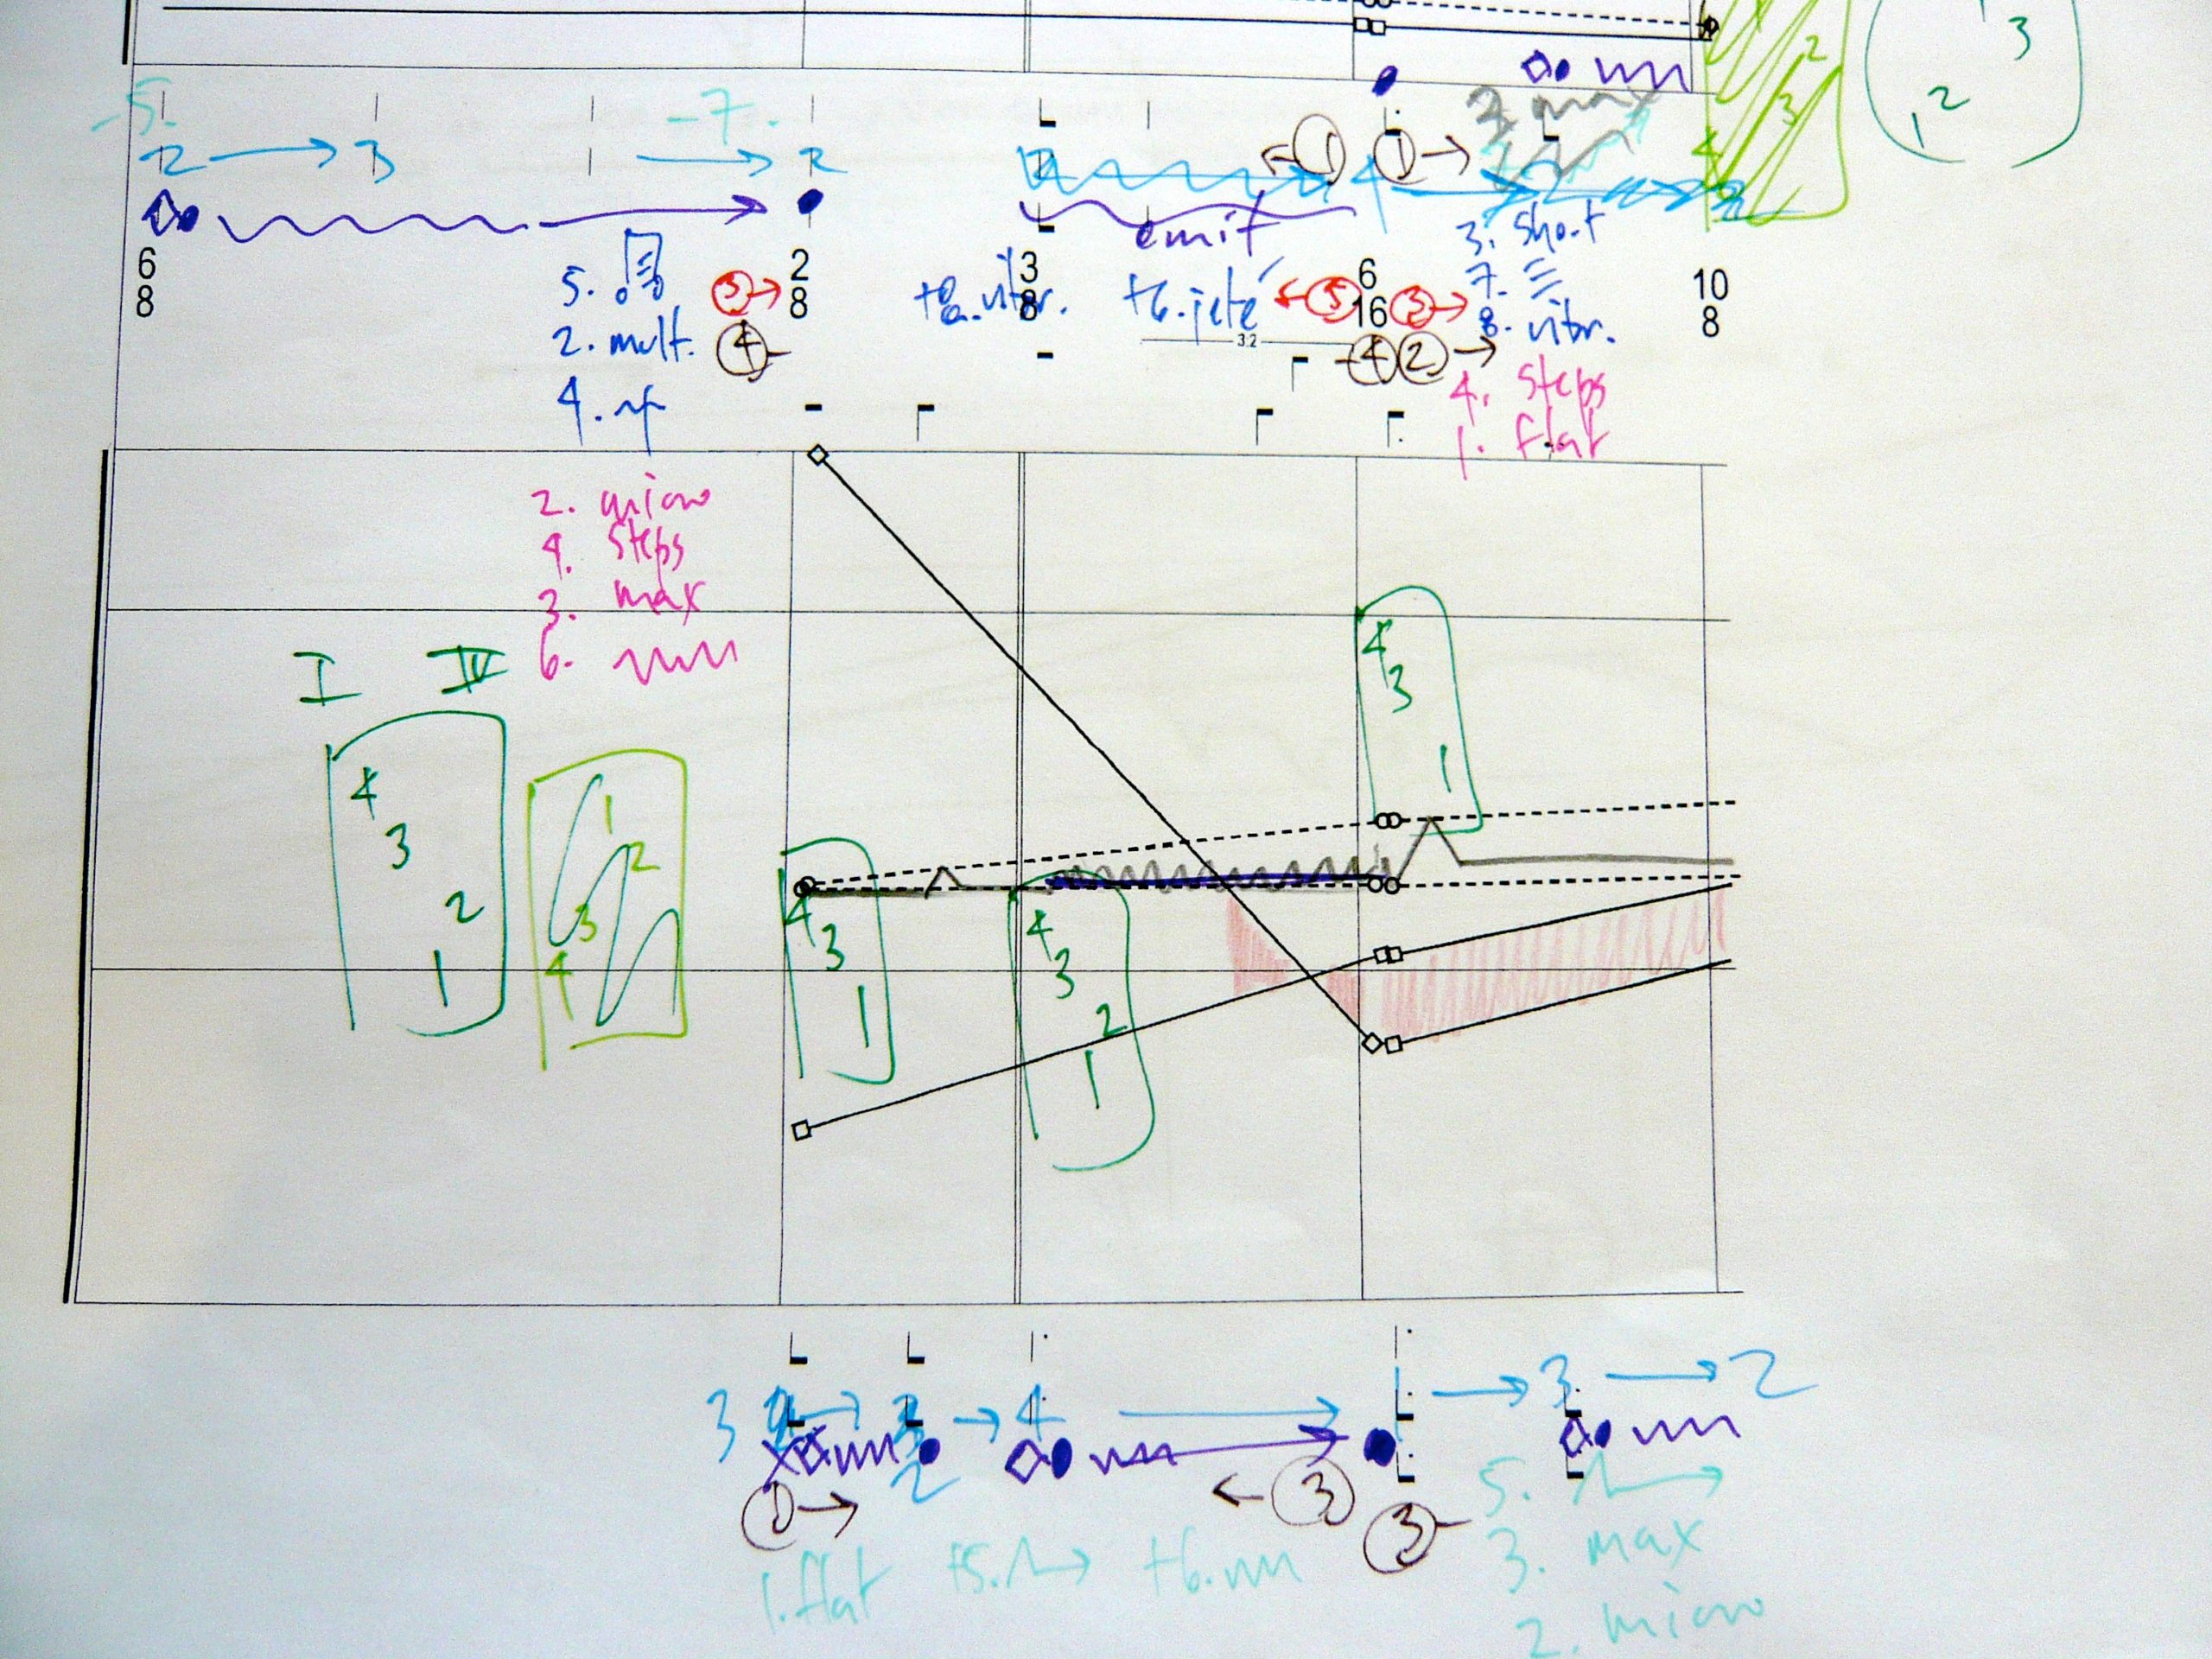 3
2
2
3
1 2
4
-5. -7. 2. max
2 → 3 → 2 ← ① ① → 4
emit
3. short
6 2 3 6 10
8 8 8 16 8
5.
③→
vibr. +6. jeté ←⑤ ③→
7.
8. vibr.
2. mult. ④ 32 ④ ② →
4. steps
4.
1. flat
2. micro
4. steps
3. max
6.
I IV
4
3
1
4
3
2
1
1
2
3
4
4
3
1
4
3
2
1
3 → → 4 → → 3 → 2
2
① → ← ③ ③
5. →
1. flat +5. → +6.
3. max
2. micro